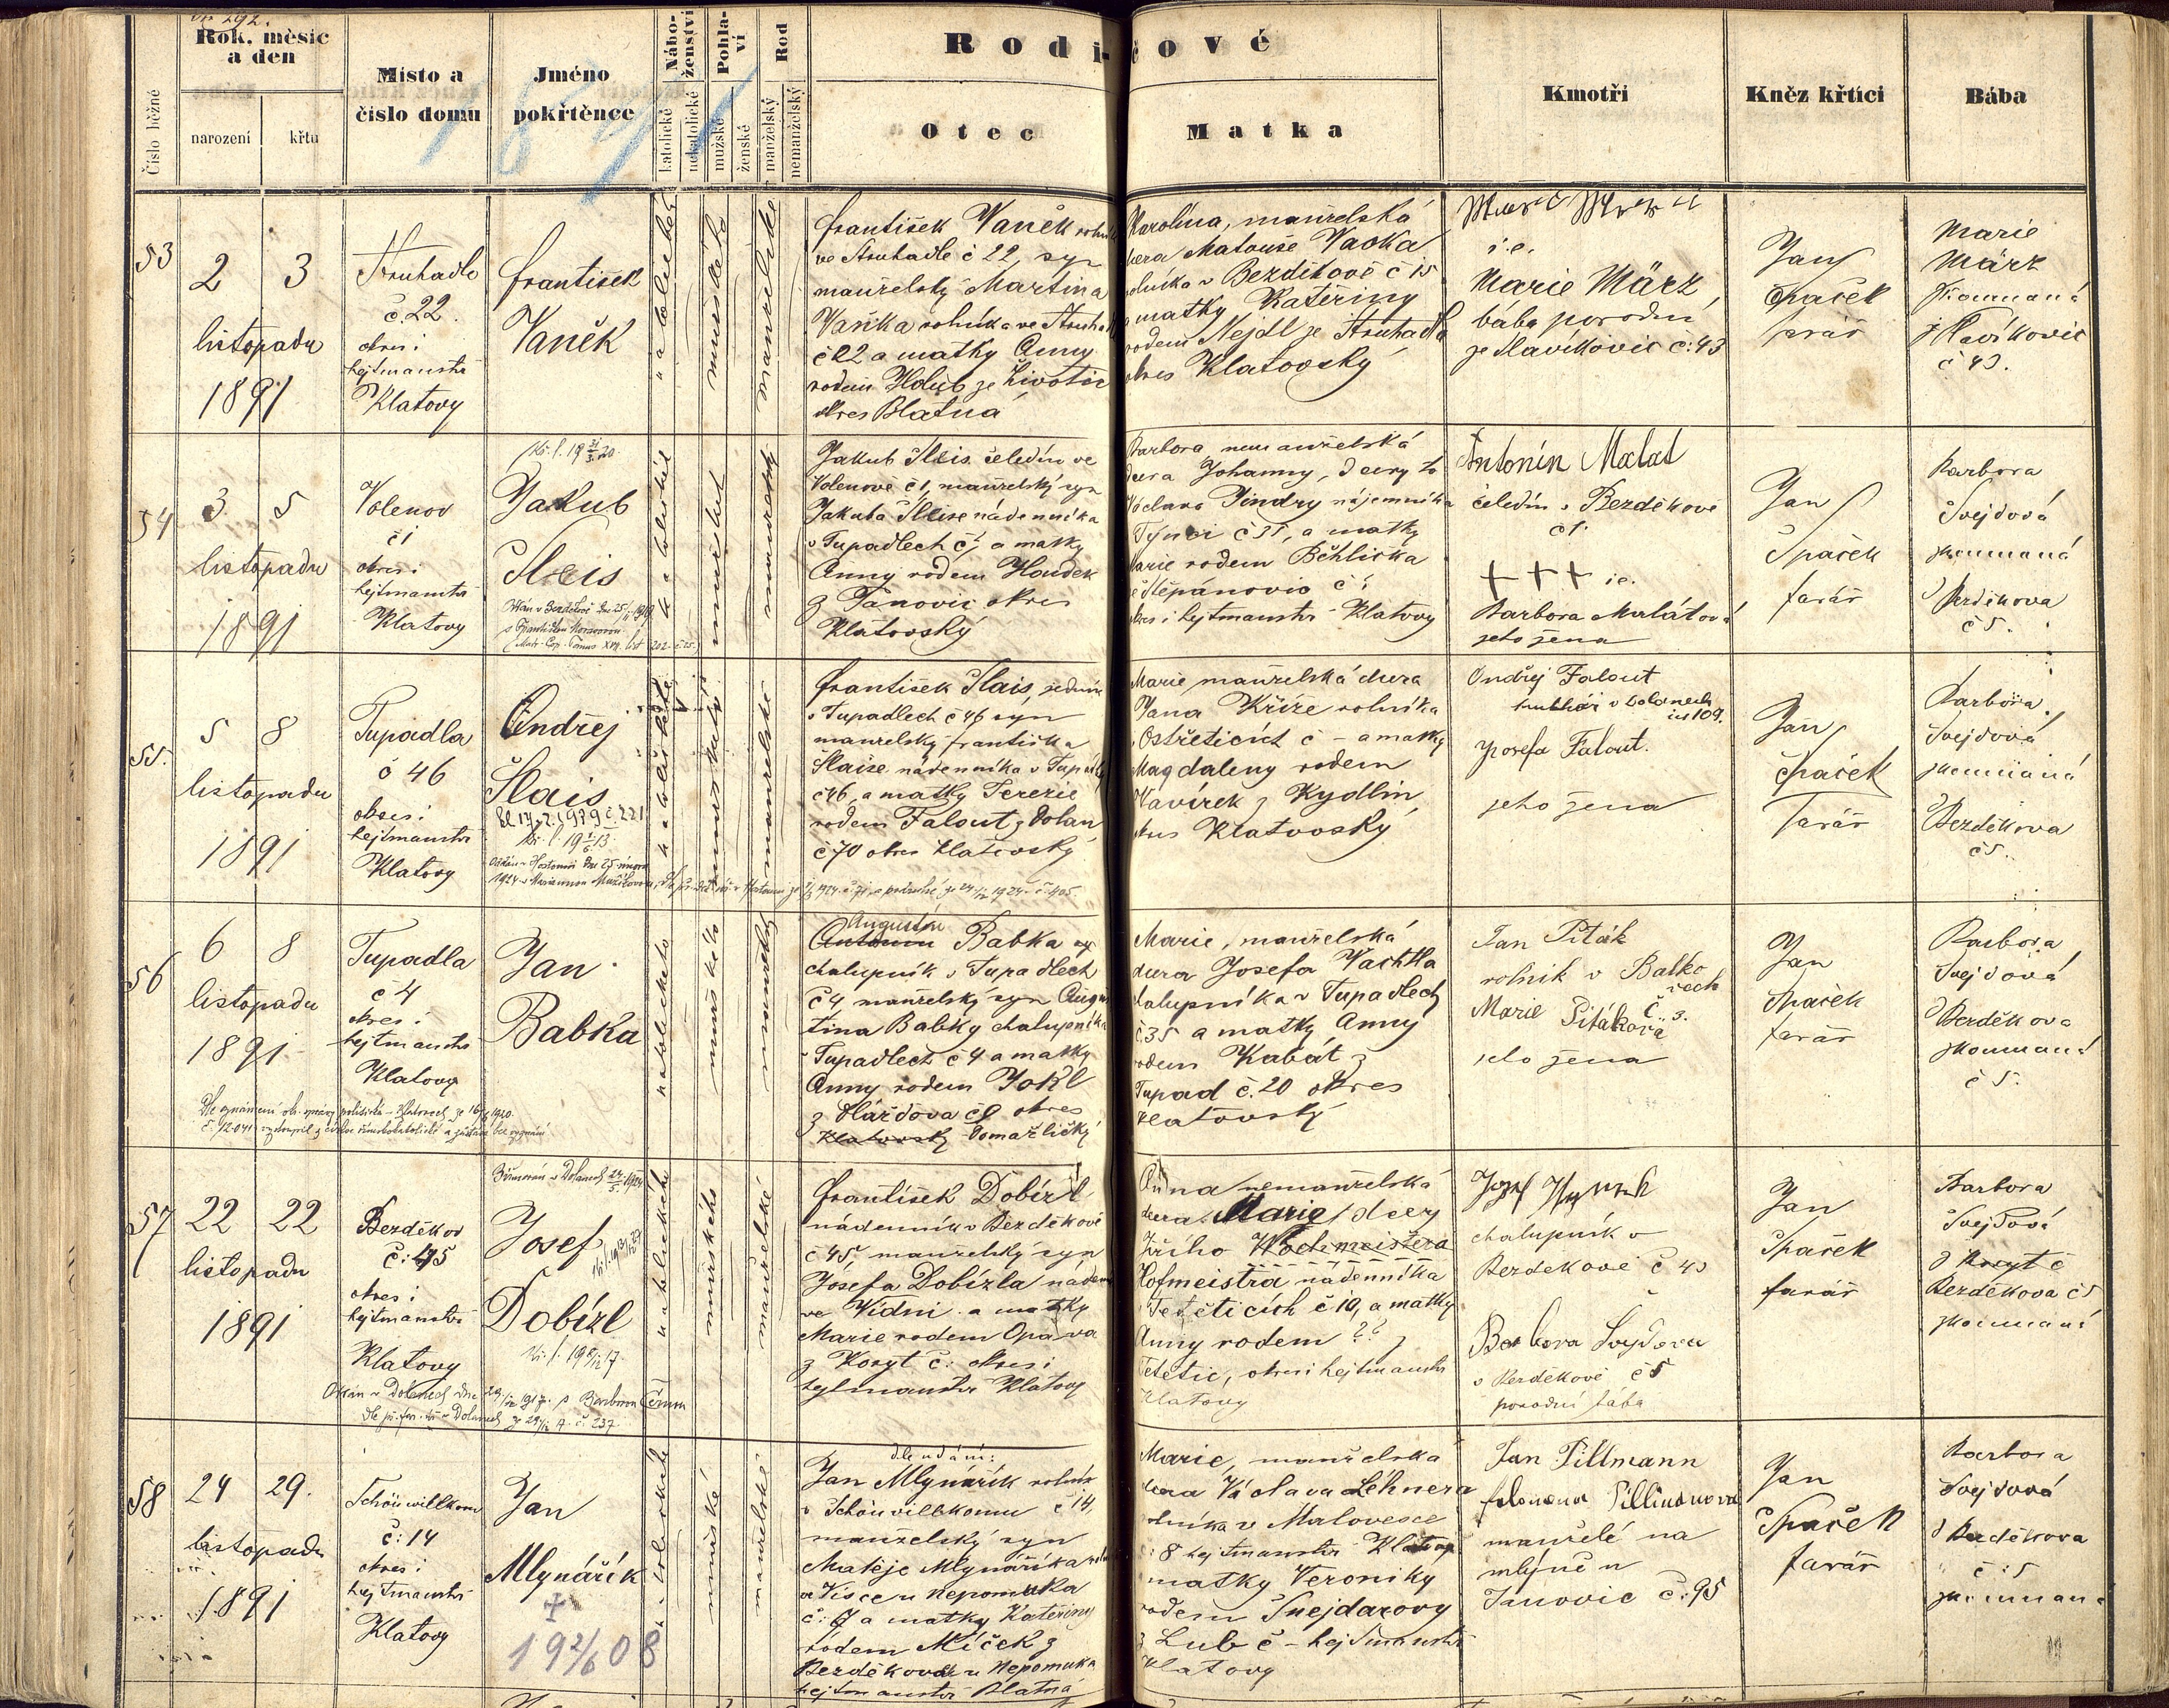 Rok, měsíc
a den
Číslo běžné
narození
křtu
Místo a
číslo domu
Jméno
pokřtěnce
Nábo-
ženství
katolické
nekatolické
Pohla-
ví
mužské
ženské
Rod
manželský
nemanželský
Rodi-
čové
Otec
Matka
Kmotři
Kněz křtící
Bába
53
2 3
listopadu
1891
Struhadlo
č. 22.
okres i
hejtmanství
Klatovy
František
Vaněk
František Vaněk rolník
ve Struhadle č 22, syn
manželský Martina
Vaňka rolníka ve Struhadle
č 22 a matky Anny
rodem Holub ze Životic
okres Blatná
Karolína, manželská
dcera Matouše Vacka
rolníka v Bezděkově č 15
a matky Kateřiny
rodem Nejdl ze Struhadla
okres Klatovský
i. e.
Marie März
bába porodní
ze Slavíkovic č: 43
Jan
Špaček
farář
Marie
März
zkoumaná
z Slavíkovic
č 43.
54
3 5
listopadu
1891
Volenov
č 1
okres i
hejtmanství
Klatovy
Jakub
Šleis
Jakub Šleis čeledín ve
Volenově č 1, manželský syn
Jakuba Šleise nádenníka
v Tupadlech č, a matky
Anny rodem Houdek
z Janovic okres
Klatovský
Barbora nemanželská
dcera Johanny, dcery
Václava Jindry nájemníka
a matky
Marie rodem Běhlička
z Štěpánovic č ?
okres i hejtmanství Klatovy
Antonín Malat
čeledín v Bezděkově
č 1.
+++ i e.
Barbora Malátová
jeho žena
Jan
Špaček
farář
Barbora
Švejdová
zkoumaná
z Bezděkova
č 5.
55.
5 8
listopadu
1891
Tupadla
č 46
okres i
hejtmanství
Klatovy
Ondřej
Šlais
František Šlais,
v Tupadlech č 46 syn
manželský Františka
Šlaise nádenníka v Tupadlech
č 46, a matky Terezie
rodem Falout z Dolan
č 70 okres Klatovský
Marie manželská dcera
Jana Kříže rolníka
v Ostřeticích č – a matky
Magdaleny rodem
Kavírek z Kydlin
okres Klatovský
Ondřej Falout
v Dolanech
čís 109.
Josefa Falout.
jeho žena
Jan
Špaček
farář
Barbora
Švejdová
zkoumaná
z Bezděkova
č 5.
56
6 8
listopadu
1891
Tupadla
č 4
okres i
hejtmanství
Klatovy
Jan
Babka
Augustin
Antonín Babka
chalupník v Tupadlech
č 4 manželský syn Augus
tina Babky chalupníka
v Tupadlech č 4 a matky
Anny rodem Jokl
z Hážďova č 9 okres
Klatovský Domažlický
Marie, manželská
dcera Josefa Vachtla
chalupníka v Tupadlech
č. 35 a matky Anny
rodem Kabát z
Tupad č. 20 okres
Klatovský
Jan Piták
rolník v Balko
vech
Č. 3.
Marie Pitáková
jeho žena
Jan
Špaček
farář
Barbora
Švejdová
z Bezděkova
zkoumaná
č 5.
57
22 22
listopadu
1891
Bezděkov
č: 45
okres i
hejtmanství
Klatovy
Josef
Dobízl
František Dobízl
nádenník v Bezděkově
č 45, manželský syn
Josefa Dobízla nádeníka
ve Vídni a matky
Marie rodem Opava
z Koryt č: okres i
hejtmanství Klatovy
Anna nemanželská
dcera Marie, dcery
Jiřího Wochmeistera
Hofmeistra nádenníka
v Tetěticích č 10, a matky
Anny rodem ?? z
Tetětic, okres i hejtmanství
Klatovy
chalupník v
Bezděkově č 43
Barbora Švejdova
v Bezděkově č 5
porodní bába
Jan
Špaček
farář
Barbora
Švejdová
z Koryt č
Bezděkova č 5
zkoumaná
58
24 29.
listopadu
1891
Schönwillkomm
č: 14
okres i
hejtmanství
Klatovy
Jan
Mlynářík
+
19 2/6 08
dle udání:
Jan Mlynařík rolník
v Schönwillkomu č 14,
manželský syn
Matěje Mlynaříka
u Nepomuka
č: 7 a matky Kateřiny
rodem Míček z
Bezděkova u Nepomuka
hejtmanství Blatná
Marie, manželská
dcera Václava Lehnera
rolníka v Malovesce
č: 8 hejtmanství Klatovy
matky Veroniky
rodem Šnejdarovy
z Lub č – hejtmanství
Klatovy
Jan Pillmann
Filomena Pillmanova
manželé na
mlýně u
Janovic č: 95
Jan
Špaček
farář
Barbora
Švejdová
z Bezděkova
č: 5
zkoumaná